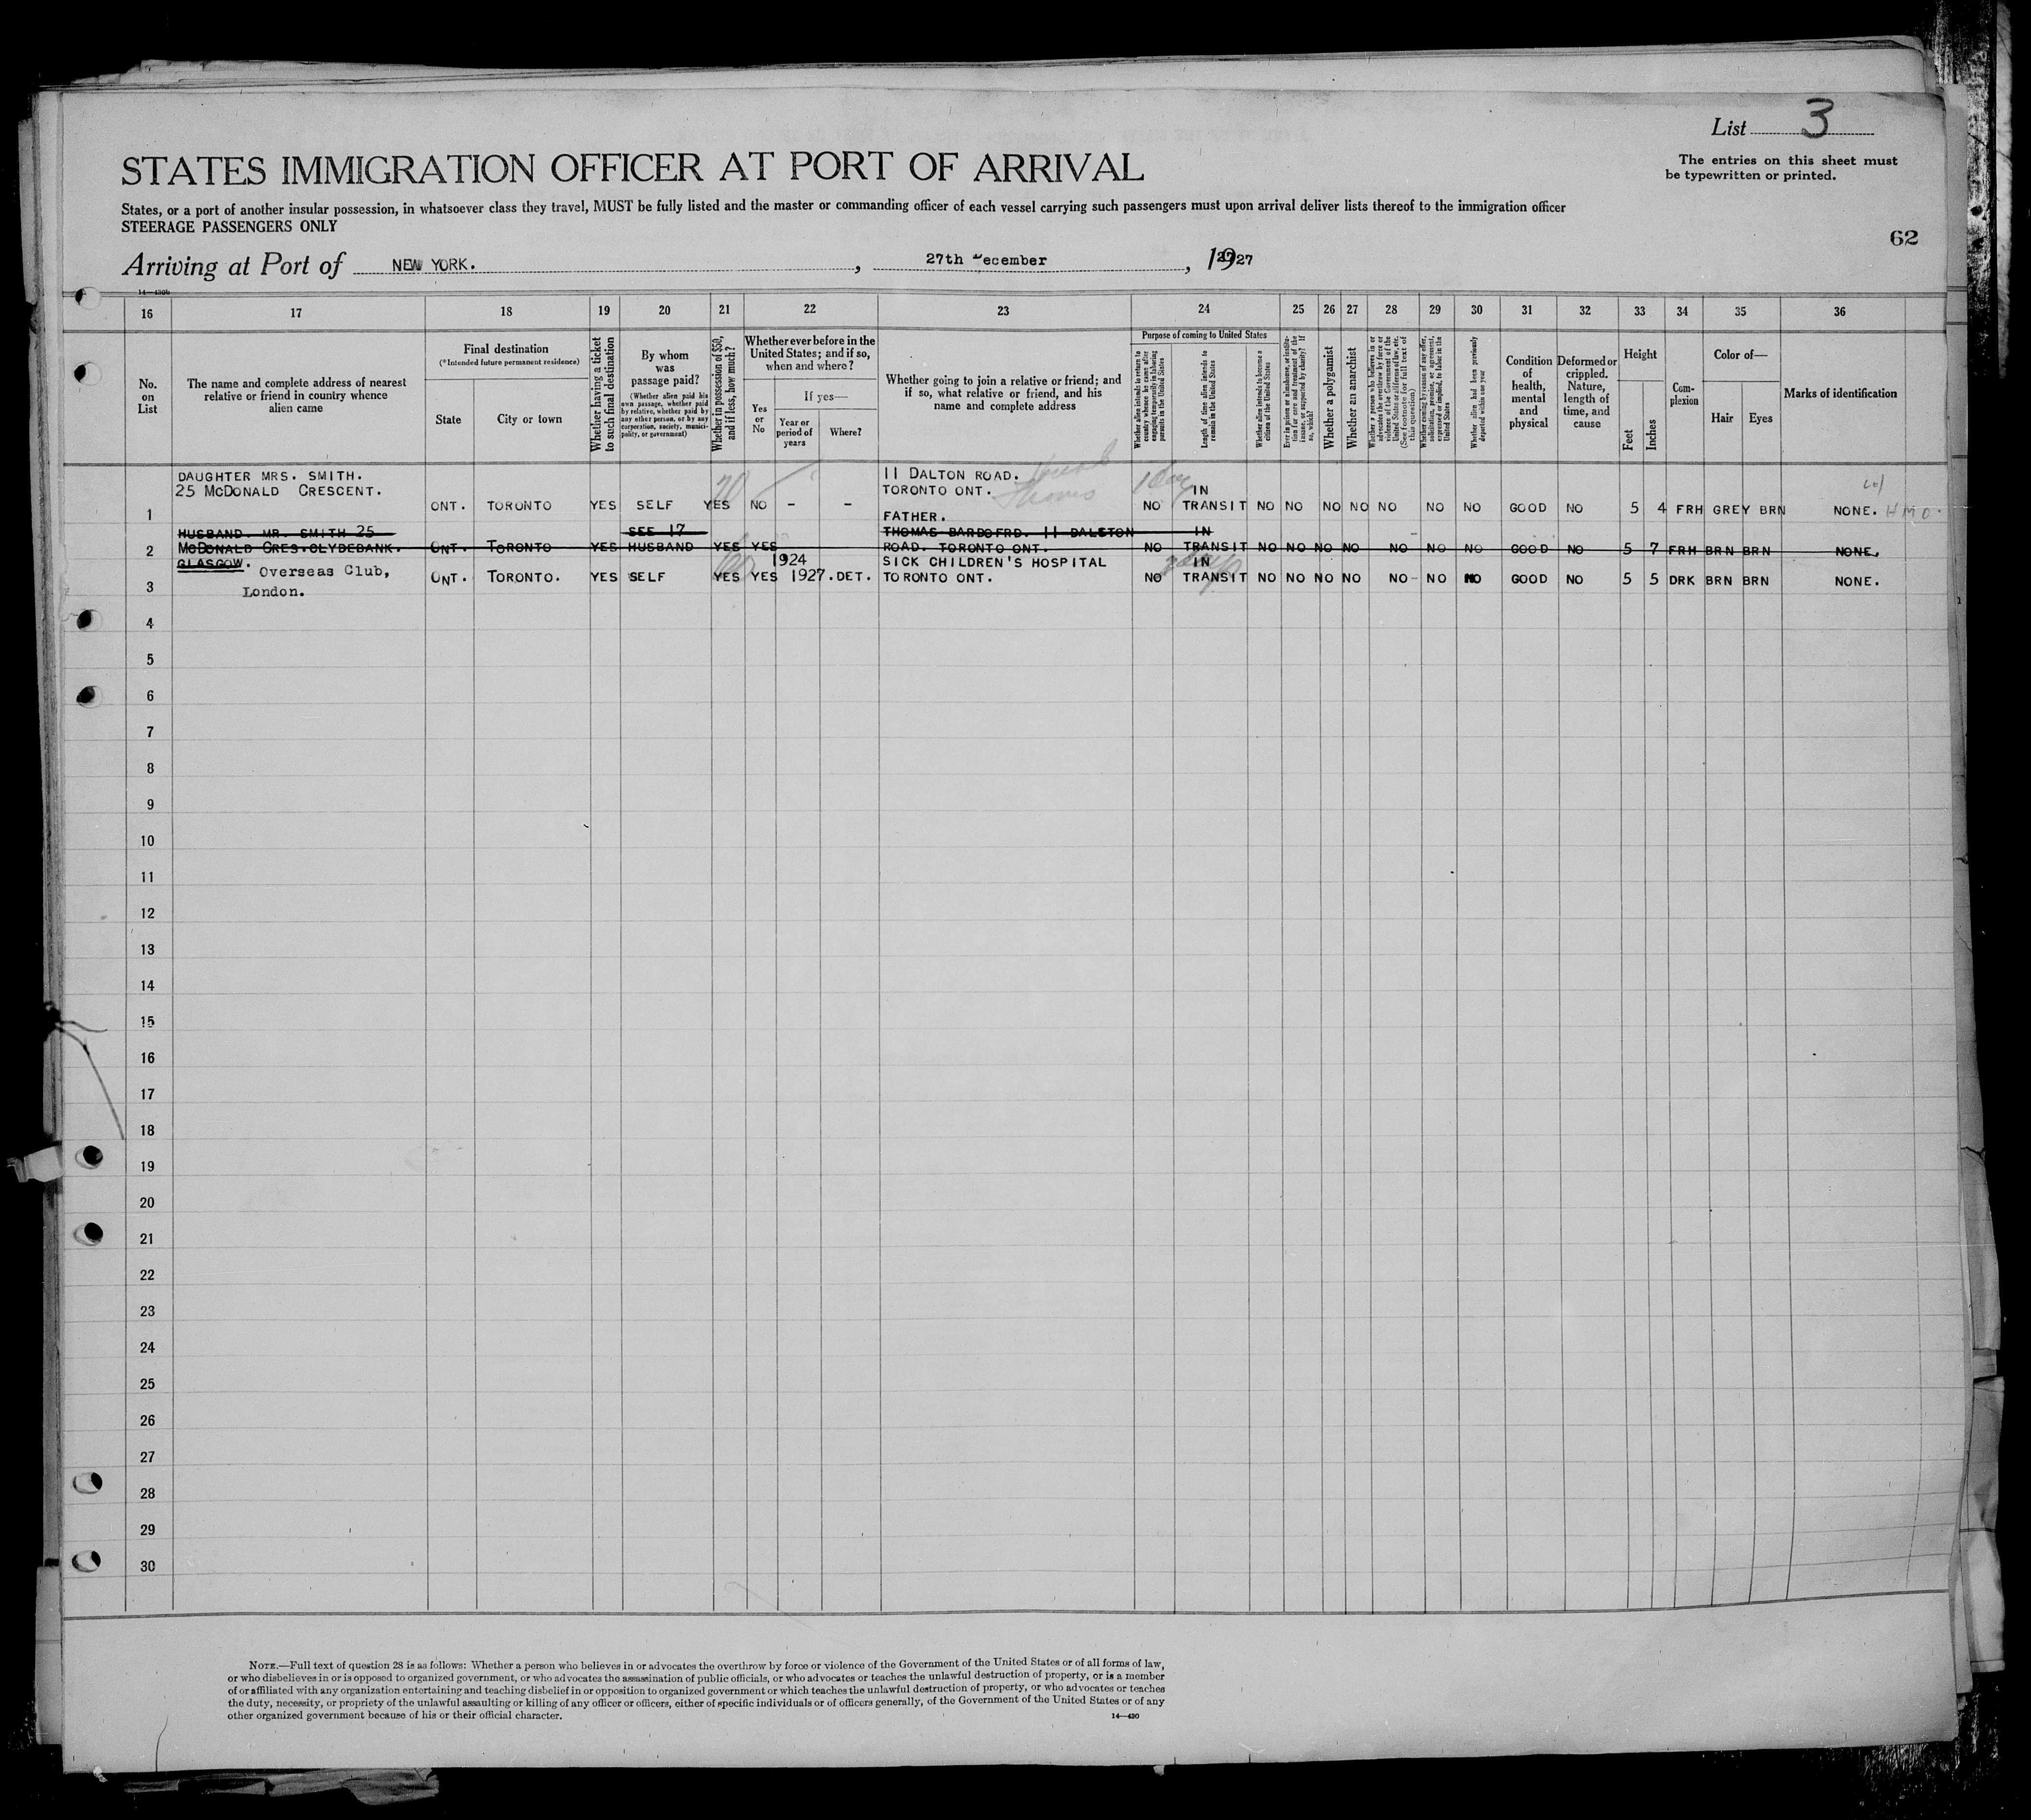 List 3
The entries on this sheet must
be typewritten or printed.
STATES IMMIGRATION OFFICER AT PORT OF ARRIVAL
States, or a port of another insular possession, in whatsoever class they travel, MUST be fully listed and the master or commanding officer of each vessel carrying such passengers must upon arrival deliver lists thereof to the immigration officer
STEERAGE PASSENGERS ONLY
62
Arriving at Port of NEW YORK. , 27th December , 1927
14—430b
16 17 18 19 20 21 22 23 24 25 26 27 28 29 30 31 32 33 34 35 36
No.
on
List
The name and complete address of nearest
relative or friend in country whence
alien came
Final destination
(*Intended future permanent residence)
State
City or town
Whether having a ticket
to such final destination
By whom
was
passage paid?
(Whether alien paid his
own passage, whether paid
by relative, whether paid by
any other person, or by any
corporation, society, munici-
pality, or government)
Whether in possession of $50,
and if less, how much?
Whether ever before in the
United States; and if so,
when and where?
Yes
or
No
If yes—
Year or
period of
years
Where?
Whether going to join a relative or friend; and
if so, what relative or friend, and his
name and complete address
Purpose of coming to United States
Whether alien intends to return to
country whence he came after
engaging temporarily in laboring
pursuits in the United States
Length of time alien intends to
remain in the United States
Whether alien intends to become a
citizen of the United States
Ever in prison or almshouse, or institu-
tion for care and treatment of the
insane, or supported by charity? If
so, which?
Whether a polygamist
Whether an anarchist
Whether a person who believes in or
advocates the overthrow by force or
violence of the Government of the
United States or all forms of law, etc.
(See footnote for full text of
this question)
Whether coming by reason of any offer,
solicitation, promise, or agreement,
expressed or implied, to labor in the
United States
Whether alien had been previously
deported within one year
Condition
of
health,
mental
and
physical
Deformed or
crippled.
Nature,
length of
time, and
cause
Height
Feet
Inches
Com-
plexion
Color of—
Hair
Eyes
Marks of identification
DAUGHTER MRS. SMITH.
25 McDONALD CRESCENT.
1 ONT. TORONTO YES SELF YES 70 NO - -
11 DALTON ROAD.
TORONTO ONT.
NO 1 day IN
TRANSIT NO NO NO NO NO NO NO GOOD NO 5 4 FRH GREY BRN NONE. HMO.
HUSBAND. MR. SMITH 25
2 McDONALD CRES. CLYDEBANK.
GLASGOW.
ONT. TORONTO YES SEE 17
HUSBAND YES YES
FATHER.
THOMAS BARDOFRD. 11 DALSTON
ROAD. TORONTO ONT.
NO IN
TRANSIT NO NO NO NO NO NO NO GOOD NO 5 7 FRH BRN BRN NONE.
3 Overseas Club,
London.
ONT. TORONTO. YES SELF YES YES 1924
1927. DET.
SICK CHILDREN'S HOSPITAL
TORONTO ONT.
NO IN
TRANSIT NO NO NO NO NO NO NO GOOD NO 5 5 DRK BRN BRN NONE.
4
5
6
7
8
9
10
11
12
13
14
15
16
17
18
19
20
21
22
23
24
25
26
27
28
29
30
NOTE.—Full text of question 28 is as follows: Whether a person who believes in or advocates the overthrow by force or violence of the Government of the United States or of all forms of law,
or who disbelieves in or is opposed to organized government, or who advocates the assassination of public officials, or who advocates or teaches the unlawful destruction of property, or is a member
of or affiliated with any organization entertaining and teaching disbelief in or opposition to organized government or which teaches the unlawful destruction of property, or who advocates or teaches
the duty, necessity, or propriety of the unlawful assaulting or killing of any officer or officers, either of specific individuals or of officers generally, of the Government of the United States or of any
other organized government because of his or their official character.
14—430